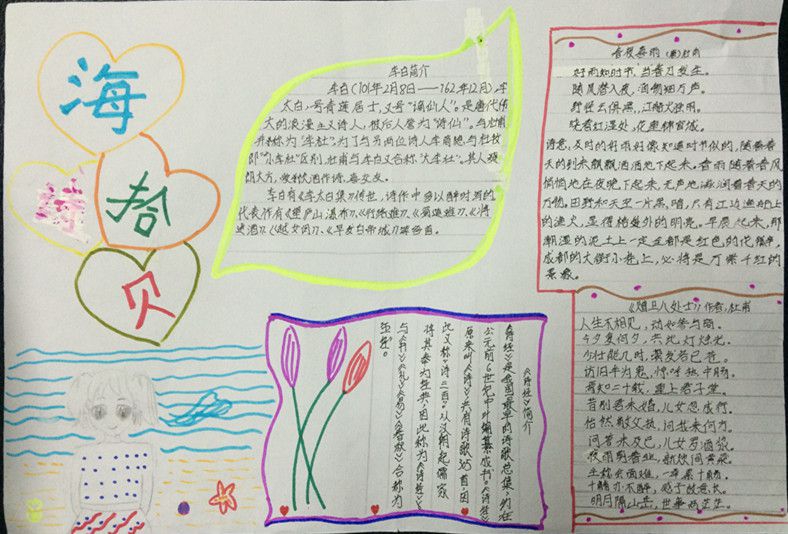 海
诗
拾
贝
李白简介
李白(701年2月8日——762年12月),李
太白,号青莲居士,又号“谪仙人”。是唐代伟
大的浪漫主义诗人,被后人誉为“诗仙”。与杜甫
并称为“李杜”,为了与另两位诗人李商隐与杜牧
即“小李杜”区别,杜甫与李白又合称“大李杜”。其人爽
朗大方,爱饮酒作诗,喜交友。
李白有《李太白集》传世,诗作中多以醉时写的,
代表作有《望庐山瀑布》、《行路难》、《蜀道难》、《将
进酒》、《越女词》、《早发白帝城》等多首。
春夜喜雨(唐)杜甫
好雨知时节,当春乃发生。
随风潜入夜,润物细无声。
野径云俱黑,江船火独明。
晓看红湿处,花重锦官城。
诗意:及时的好雨好像知道时节似的,随着春
天的到来飘飘洒洒地下起来。春雨随着春风
悄悄地在夜晚下起来,无声地滋润着春天的
万物。田野和天空一片黑暗,只有江边渔船上
的渔火,显得格外的明亮。早晨起来,那
潮湿的泥土上一定全都是红色的花瓣,
成都的大街小巷上,必将是万紫千红的
景象。
《诗经》简介
《诗经》是我国最早的诗歌总集,约在
公元前6世纪中叶编纂成书。《诗经》
原来叫《诗》,共有诗歌305首,因
此又称“诗三百”。从汉朝起儒家
将其奉为经典,因此称为《诗经》,
与《书》《礼》《易》《春秋》合称为
五经。
《赠卫八处士》作者:杜甫
人生不相见,动如参与商。
今夕复何夕,共此灯烛光。
少壮能几时,鬓发各已苍。
访旧半为鬼,惊呼热中肠。
焉知二十载,重上君子堂。
昔别君未婚,儿女忽成行。
怡然敬父执,问我来何方。
问答未及已,儿女罗酒浆。
夜雨剪春韭,新炊间黄粱。
主称会面难,一举累十觞。
十觞亦不醉,感子故意长。
明日隔山岳,世事两茫茫。